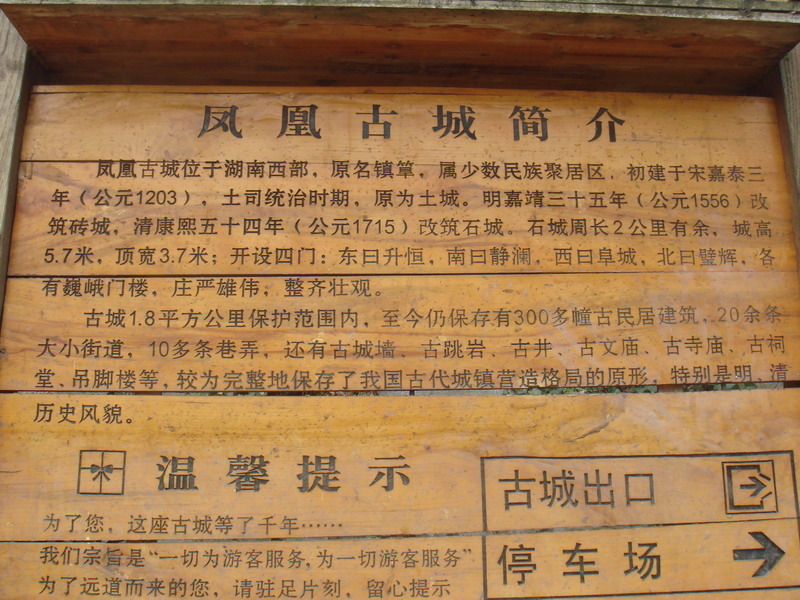 凤凰古城简介
凤凰古城位于湖南西部，原名镇筸，属少数民族聚居区，初建于宋嘉泰三
年（公元1203），土司统治时期，原为土城。明嘉靖三十五年（公元1556）改
筑砖城，清康熙五十四年（公元1715）改筑石城。石城周长2公里有余，城高
5.7米，顶宽3.7米；开设四门：东曰升恒，南曰静澜，西曰阜城，北曰璧辉，各
有巍峨门楼，庄严雄伟，整齐壮观。
古城1.8平方公里保护范围内，至今仍保存有300多幢古民居建筑，20余条
大小街道，10多条巷弄，还有古城墙、古跳岩、古井、古文庙、古寺庙、古祠
堂、吊脚楼等，较为完整地保存了我国古代城镇营造格局的原形，特别是明、清
历史风貌。
温馨提示
为了您，这座古城等了千年……
我们宗旨是“一切为游客服务，为一切游客服务”
为了远道而来的您，请驻足片刻，留心提示
古城出口
停车场